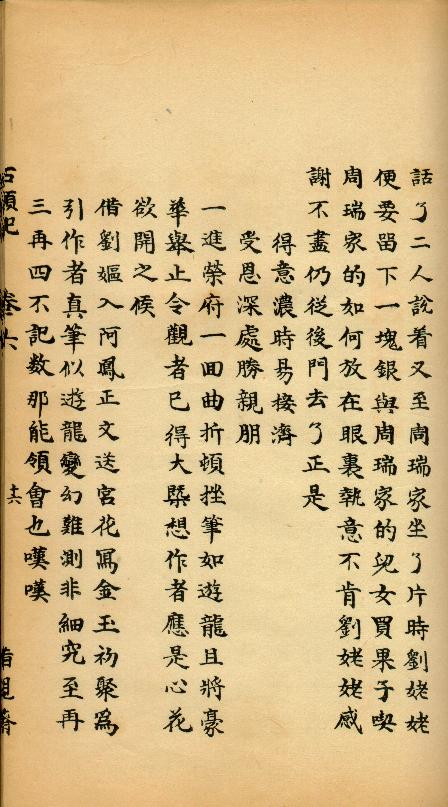 話了二人說着又至周瑞家坐了片時劉姥姥
便要留下一塊銀與周瑞家的兒女買果子喫
周瑞家的如何放在眼裏執意不肯劉姥姥感
謝不盡仍從後門去了正是
得意濃時易接濟
受恩深處勝親朋
一進榮府一回曲折頓挫筆如遊龍且將豪
華舉止令觀者已得大槩想作者應是心花
欲開之候
借劉嫗入阿鳳正文送宮花寫金玉初聚爲
引作者真筆似遊龍變幻難測非細究至再
三再四不記數那能領會也嘆嘆
石頭記 卷六 十六 脂硯齋